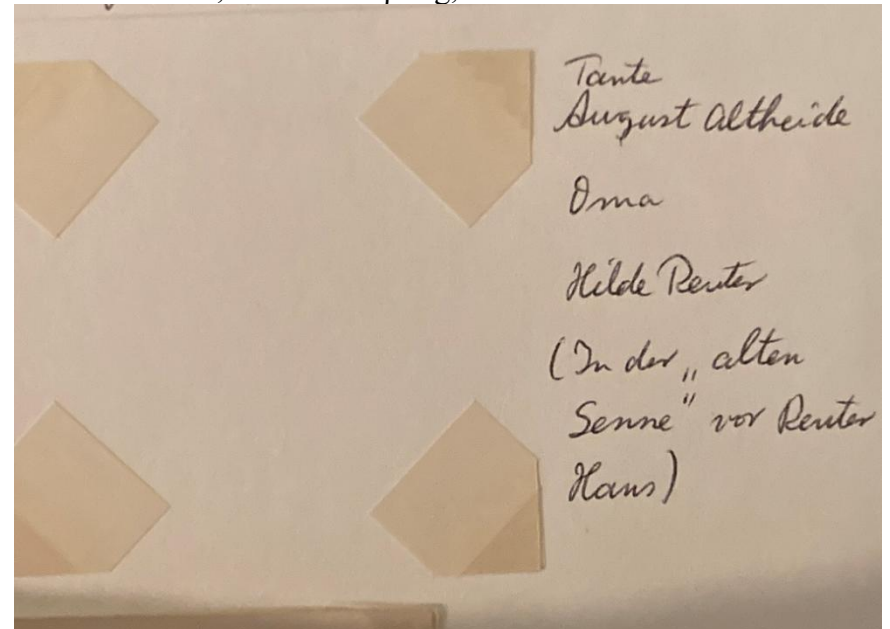 Tante
August Altheide
Oma
Hilde Reuter
(In der „alten
Senne" vor Reuter
Haus)